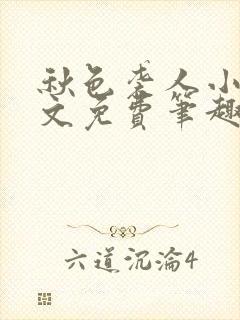 秋色袭人小
文免费笔趣
六道沉淪4